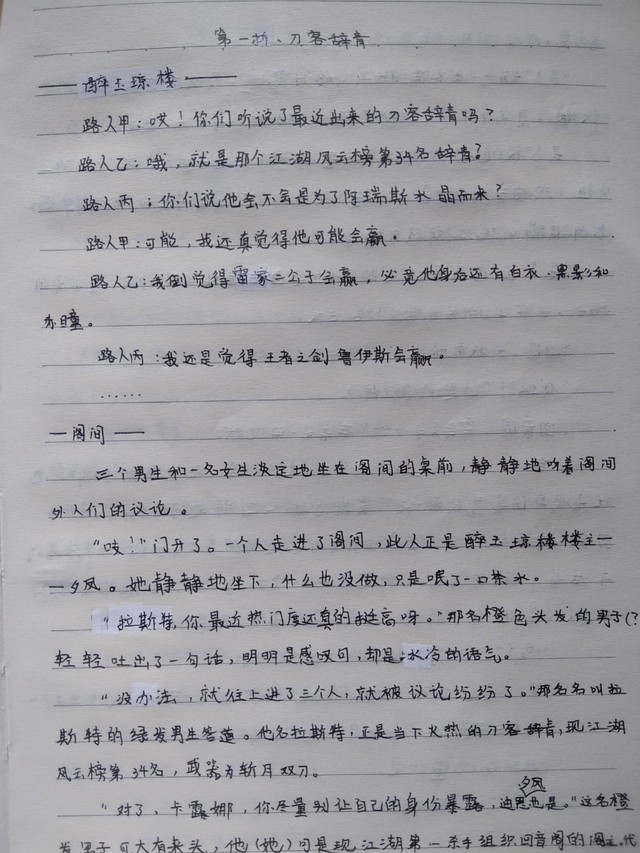 第一折、刀客辞青
——醉玉琼楼——
路人甲：哎！你们听说了最近出来的刀客辞青吗？
路人乙：哦，就是那个江湖风云榜第34名辞青？
路人丙：你们说他会不会是为了阿瑞斯水晶而来？
路人甲：可能，我还真觉得他可能会赢。
路人乙：我倒觉得雷家二公子会赢，必竟他身后还有白衣、黑影和
赤瞳。
路人丙：我还是觉得王者之剑鲁伊斯会赢。
……
—阁间——
三个男生和一名女生淡定地坐在阁间的桌前，静静地听着阁间
外人们的议论。
“吱！”门开了。一个人走进了阁间，此人正是醉玉琼楼楼主—
—夕风。她静静地坐下，什么也没做，只是喝了一口茶水。
“拉斯特，你最近热门度还真的挺高呀。”那名橙色头发的男子(?
轻轻吐出了一句话，明明是感叹句，却是冰冷的语气。
“没办法，就往上进了三个人，就被议论纷纷了。”那名名叫拉
斯特的绿发男生答道。他名拉斯特，正是当下火热的刀客辞青，现江湖
风云榜第34名，武器为斩月双刀。
“对了、卡露娜，你尽量别让自己的身份暴露，夕风也是。”这名橙
发男子可大有来头，他（她）可是现江湖第一杀手组织回音阁的阁主，代